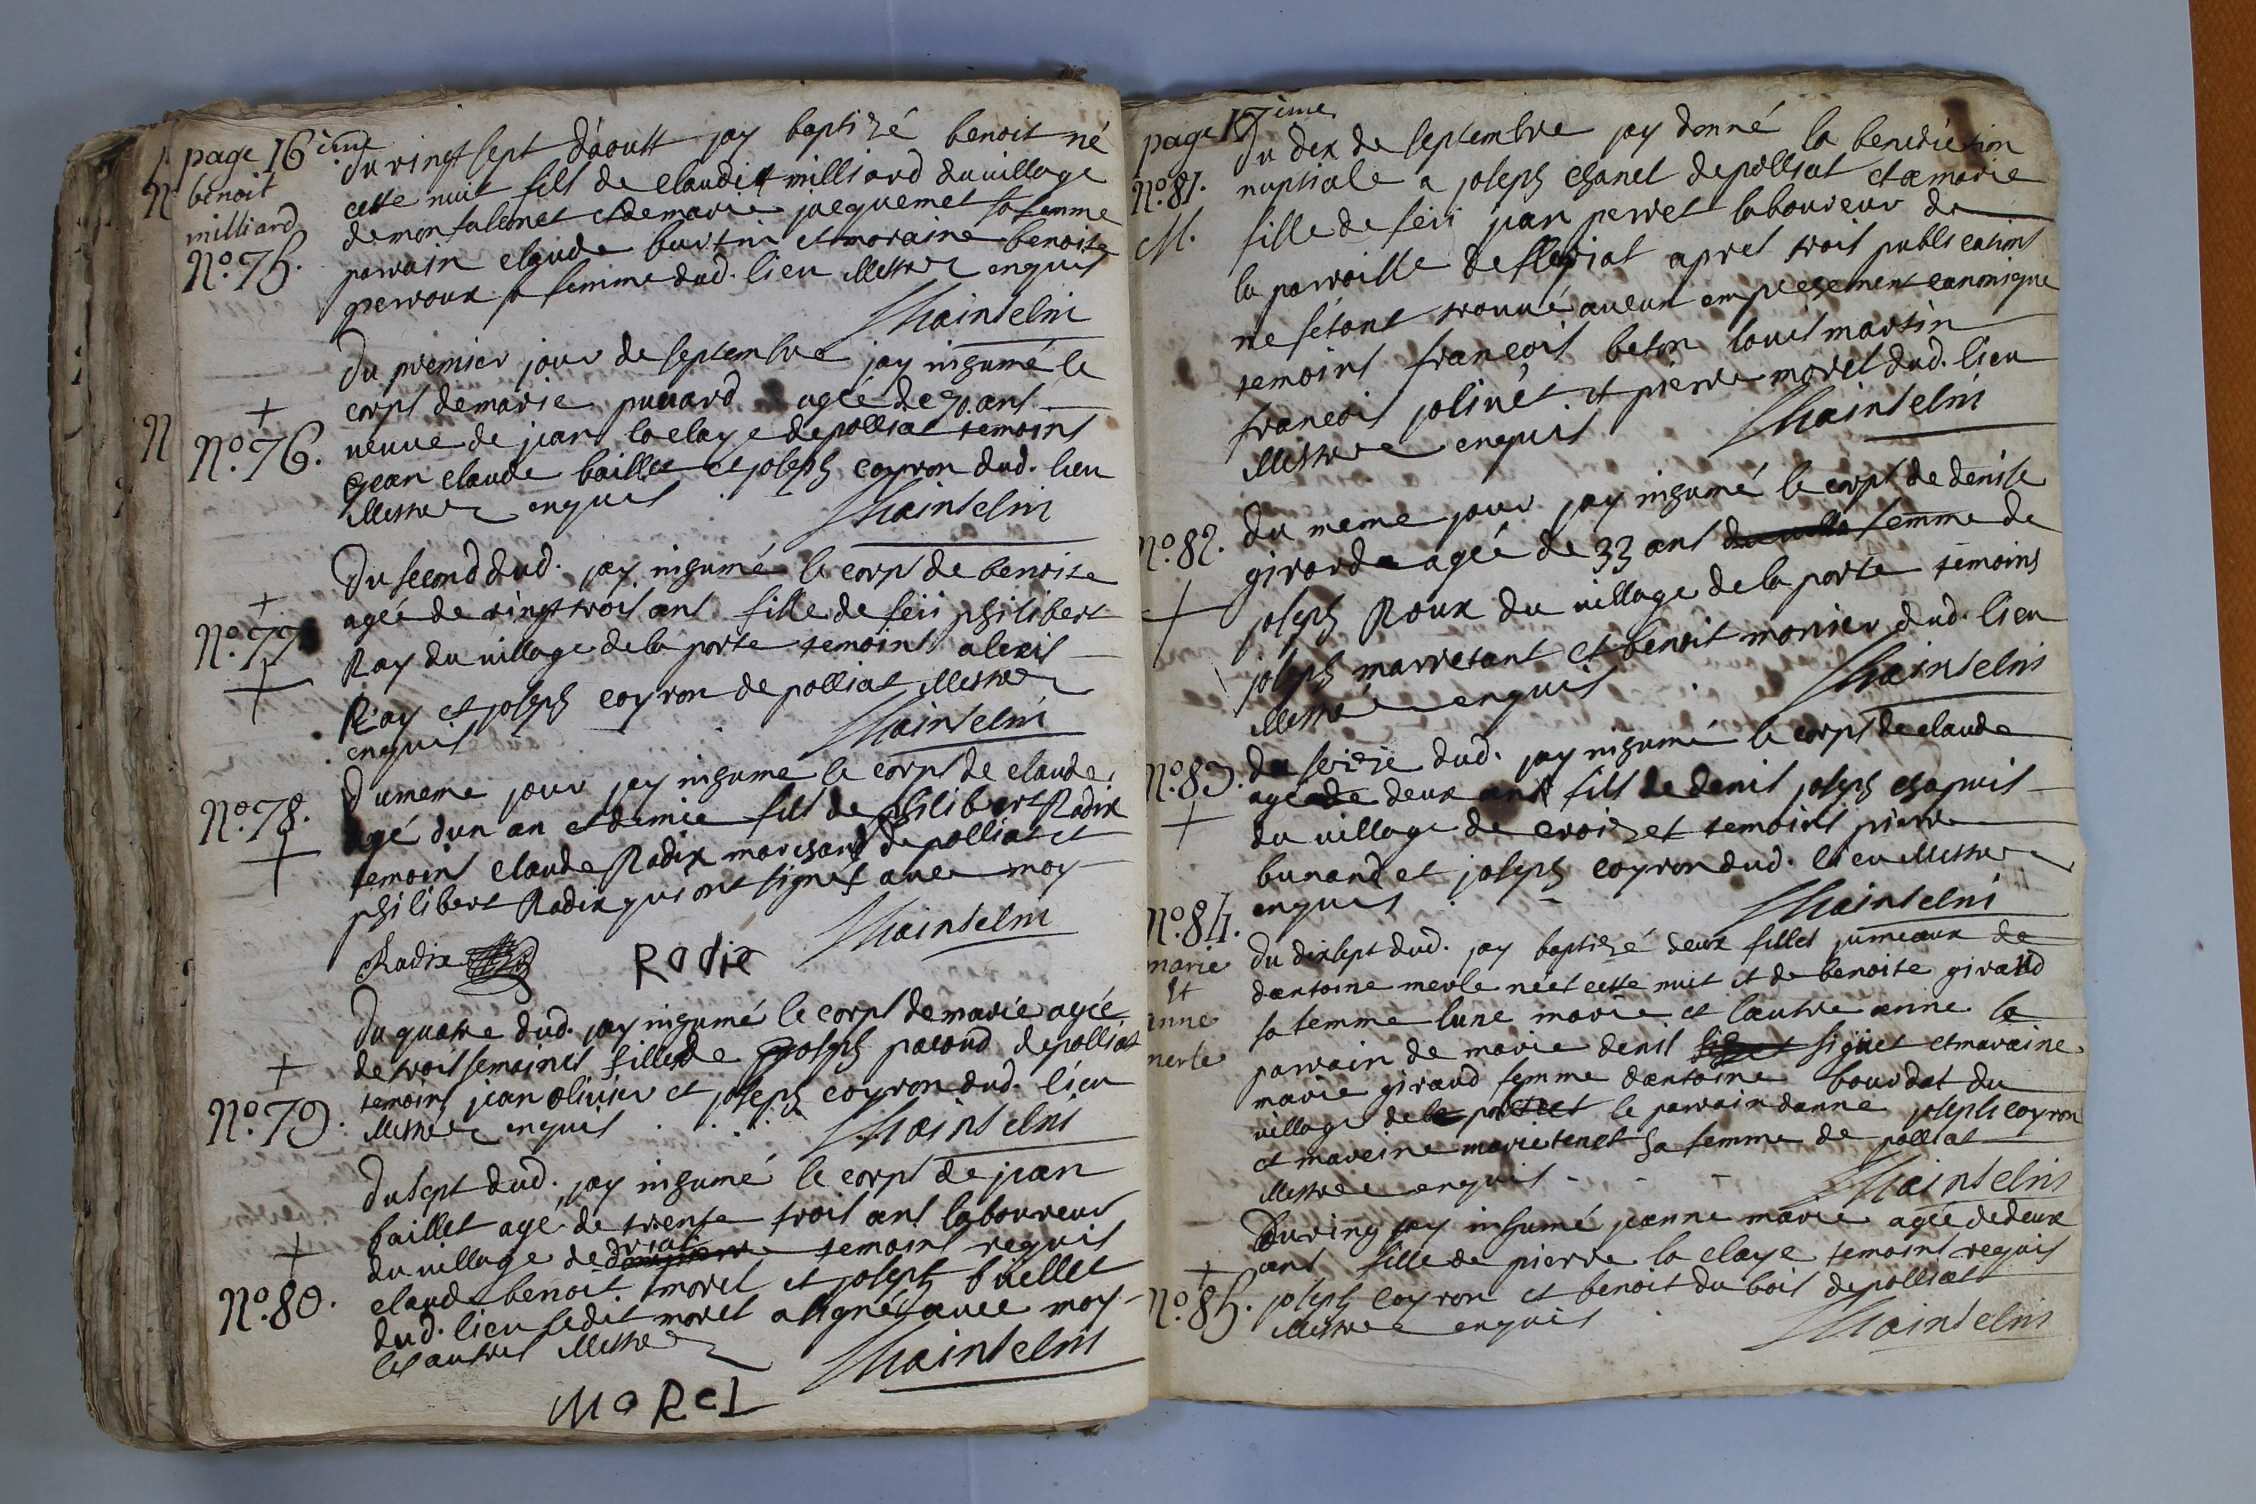 page 16ème
N benoit
milliard
N°. 75.
du vingt sept d'aoust jay baptizé benoit né
cette nuit fils de claude milliard du village
de montalonet et de marie jacquemet sa femme
parrain claude burtin et maraine benoite
perroux sa femme dud. lieu illettrez enquis
Mainselin
N
+
N°. 76.
Du premier jour de septembre jay inhumé le
corps de marie puvard agée de 70. ans
veuve de jean la claye de polliat temoins
jean claude baillet et joseph coyron dud. lieu
illettrez enquis
Mainselin
+
N°. 77
Du second dud. jay inhumé le corps de benoite
agée de vingt trois ans fille de feü philibert
Ray du village de la porte temoins alexis
Ray et joseph coyron de polliat illettrez
enquis
Mainselin
N°. 78.
+
Du meme jour jay inhumé le corps de claude
agé dun an et demie fils de philibert Radix
temoins claude Radix marchand de polliat et
philibert Radix qui ont signés avec moy
Mainselin
Radix Radix
+
N°. 79.
Du quatre dud. jay inhumé le corps de marie agée
de trois semaines fille de joseph pacoud de polliat
temoins jean olivier et joseph coyron dud. lieu
illettrez enquis
Mainselin
+
N°. 80.
Du sept dud. jay inhumé le corps de jean
baillet agé de trente trois ans laboureur
du village de temoins requis
claude benoit morel et joseph buellet
dud. lieu ledit morel a signé avec moy
les autres illettrez
Mainselin
MoRel
page 17ème
N°. 81.
M.
Du dix de septembre jay donné la benediction
nuptiale a joseph chanel de polliat et a marie
fille de feü jean perret laboureur de
la parroisse de apres trois publications
ne sétant trouvé aucun empeschement canonique
temoins françois beton louis martin
francois jolivet et pierre morel dud. lieu
illettrez enquis
Mainselin
N°. 82.
+
Du meme jour jay inhumé le corps de denise
girarde agée de 33 ans femme de
joseph Roux du village de la porte temoins
joseph marretant et benoit monier dud. lieu
illettrez enquis
Mainselin
N°. 83.
+
du seizie dud. jay inhumé le corps de claude
agé de deux ans fils de denis joseph chapuis
du village de croizet temoins pierre
bunand et joseph coyron dud. lieu illettrez
enquis
Mainselin
N°. 84.
marie
et
anne
merle
Du dixsept dud. jay baptizé deux filles jumeaux de
dantoine merle neés cette nuit et de benoite giraud
sa femme lune marie et lautre anne le
parrain de marie denis siguet et maraine
marie giraud femme dantoine bourdat du
village de la porte et le parrain danne joseph coyron
et maraine marie tenet sa femme de polliat
illettrez enquis
Mainselin
+
N°. 85.
Du ving jay inhumé jeanne marie agée de deux
ans fille de pierre la claye temoins requis
joseph coyron et benoit du bois de polliat
illettrez enquis
Mainselin